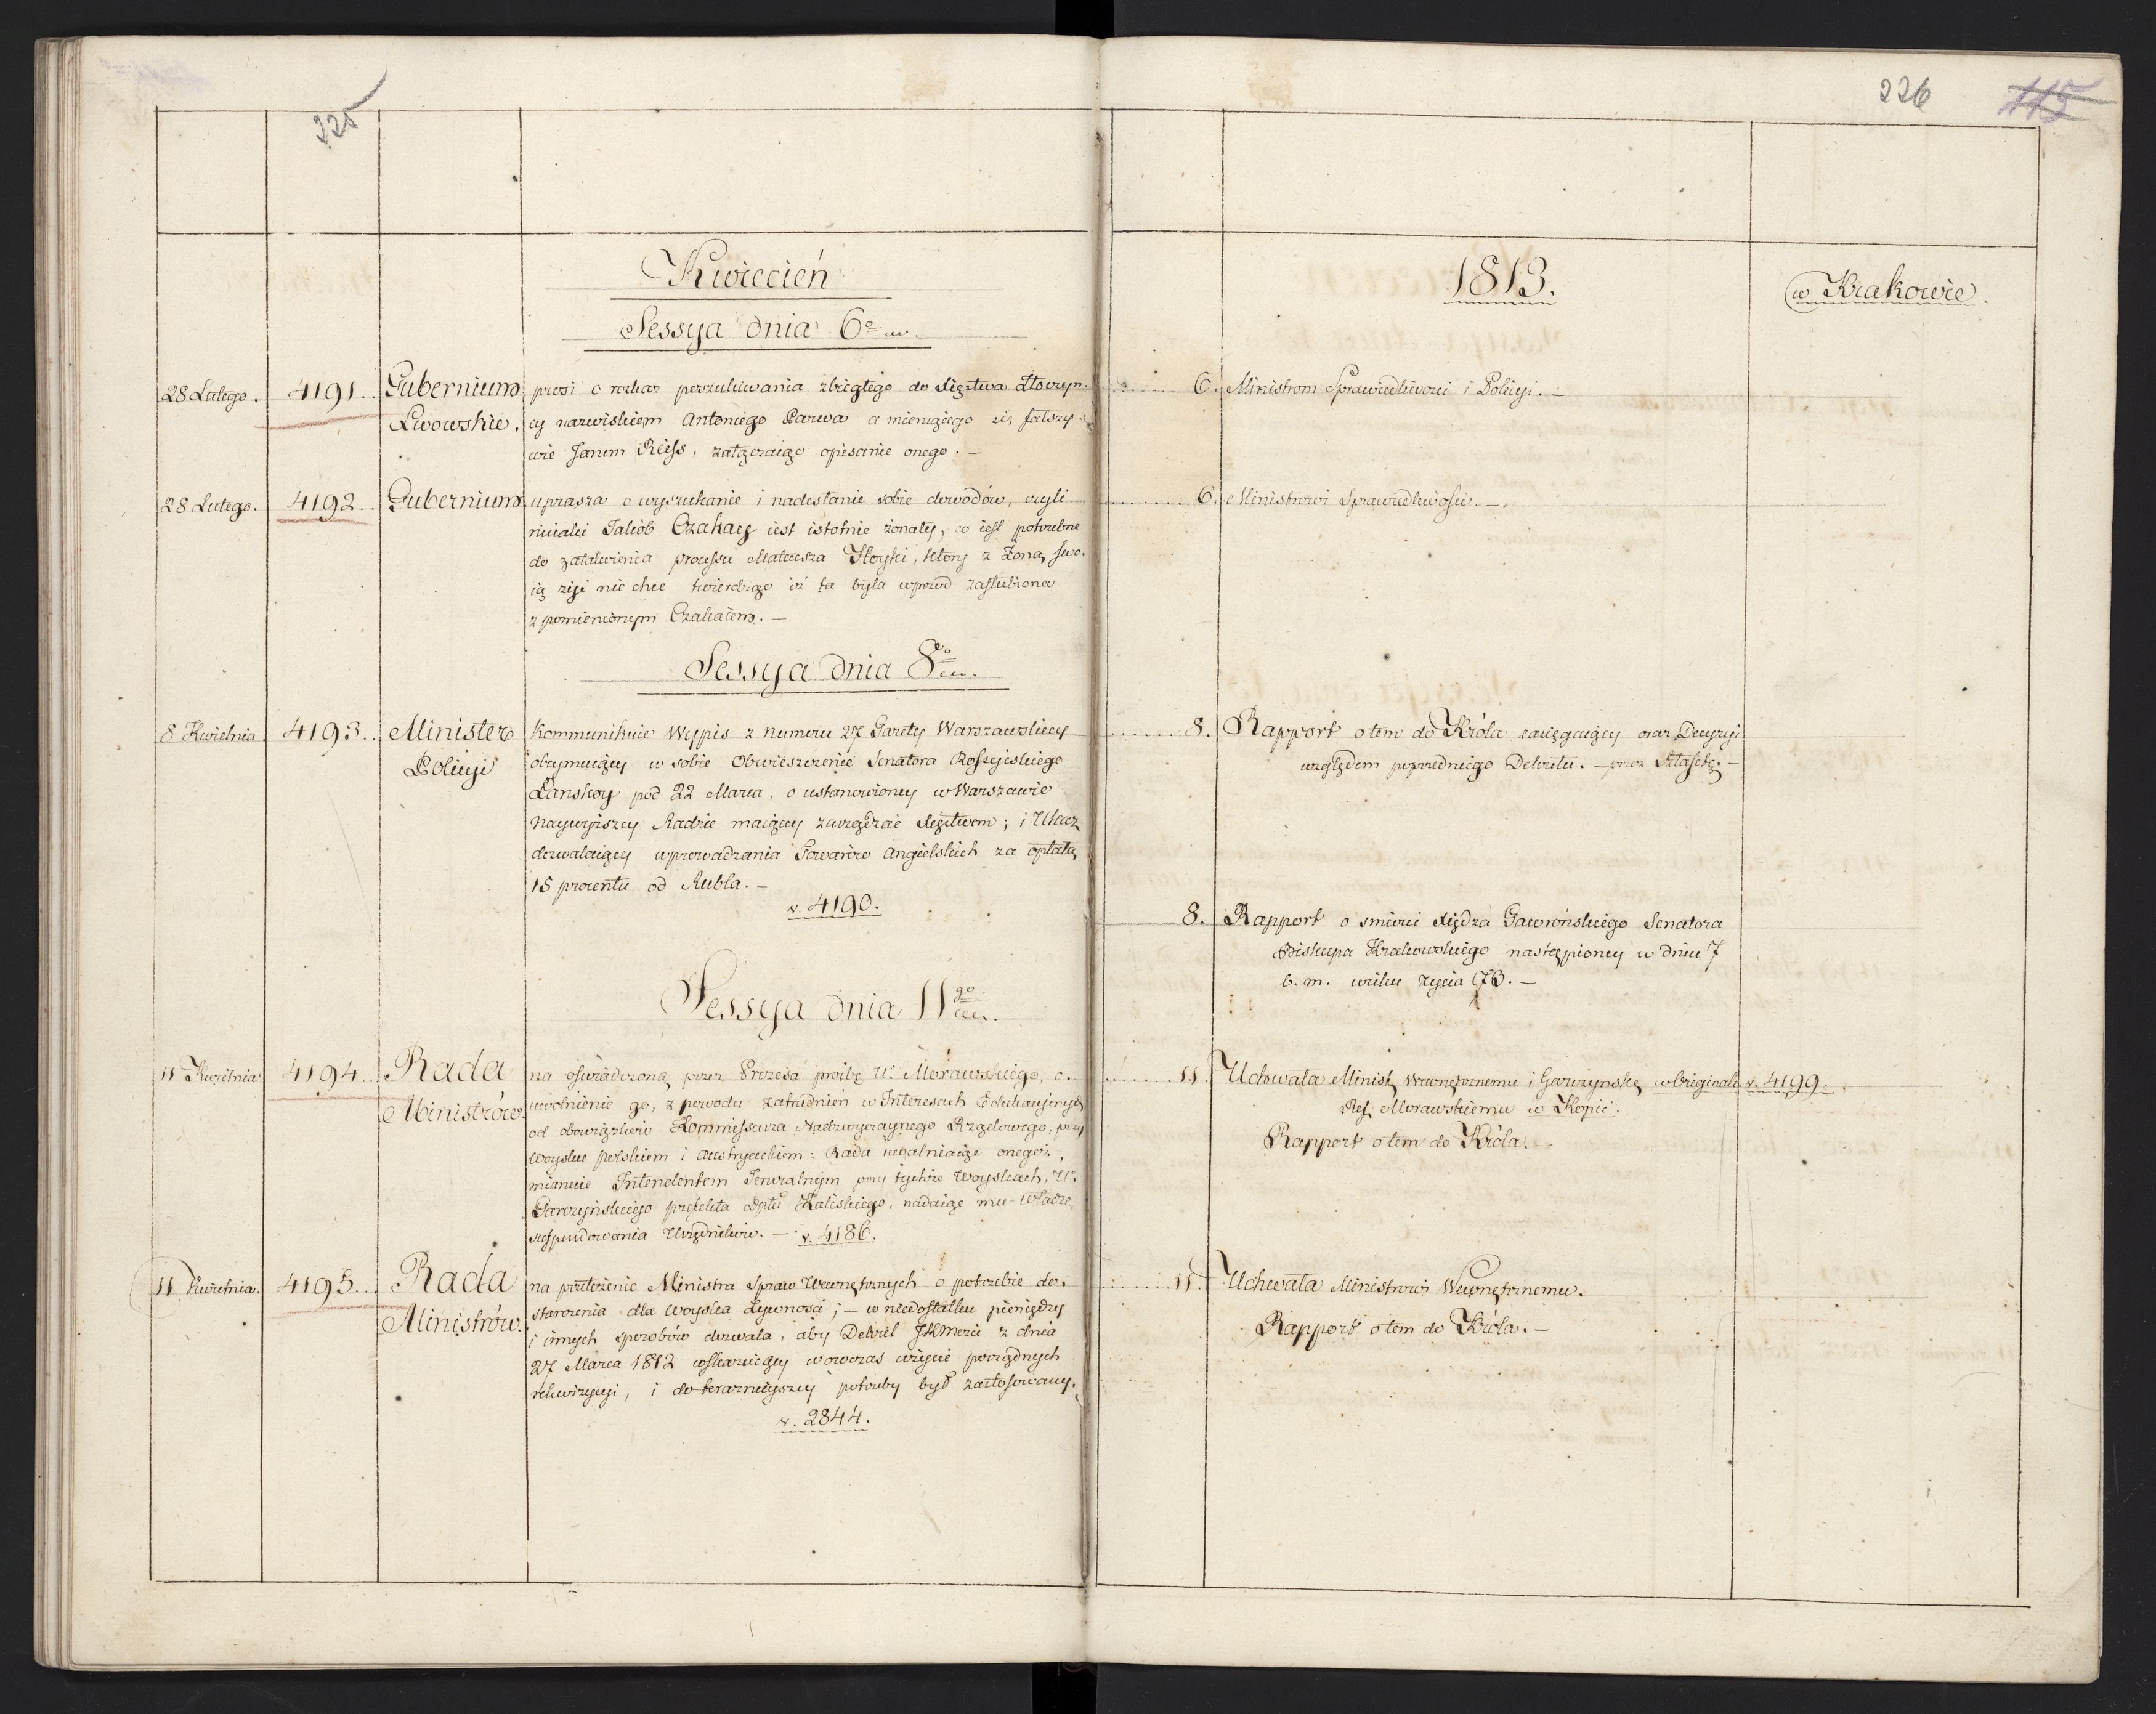 225
Kwiecień
Sessya dnia 6º
28 Lutego. 4191. Gubernium prosi o rozkaz poszukiwania zbiegłego do Xięstwa złoczyń-
Lwowskie. cy nazwiskiem Antoniego Parwa a mieniącego się fałszy-
wie Janem Reiss, załączaiąc opisanie onego. —
28 Lutego. 4192. Gubernium uprasza o wyszukanie i nadesłanie sobie dowodów, czyli
Jakób Czakay iest istotnie żonaty, co iest potrzebne
do załatwienia processu Mateusza, który z Żoną swo-
ią żyć nie chce twierdząc iż ta była wprzód zaślubiona
z pomienionym Czakaiem. —
Sessya dnia 8º
8 Kwietnia. 4193. Minister Kommunikuie Wypis z Numeru 27 Gazety Warszawskiey
Policyi obeymuiący w sobie Obwieszczenie Senatora Rossyiskiego
Łanskoy pod 22 Marca, o ustanowioney w Warszawie
Naywyższey Radzie maiącey zarządzać Xięstwem; i Ukaz
dozwalaiący wprowadzania Towarów Angielskich za opłatą
15 procentu od Rubla. —
v. 4190.
Sessya dnia 11go
11 Kwietnia 4194. Rada na oświadczoną przez Prezesa prośbę Ur. Morawskiego, o
Ministrów. uwolnienie go, z powodu zatrudnień w Interesach Edukacyinych
od obowiązków Kommissarza Nadzwyczaynego Rządowego, przy
Woysku polskiem i Austryackiem; Rada uwalniaiąc onegoż,
mianuie Intendentem Jeneralnym przy tychże Woyskach, Ur.
Garczyńskiego prefekta Dptu Kaliskiego, nadaiąc mu władzę
suspendowania Urzędników. — v. 4186.
11 Kwietnia. 4195. Rada na przełożenie Ministra Spraw Wewnętrznych o potrzebie do-
Ministrów. starczenia dla Woyska Żywności; — w niedostatku pieniędzy
i innych sposobów dozwala, aby Dekret JKMci z dnia
27 Marca 1812 wskazuiący wowczas użycie porządnych
rekwizycyi, i do teraznieyszey potrzeby był zastosowany.
v. 2844.
226
115
1813.
w Krakowie.
6. Ministrom Sprawiedliwości i Policyi. —
6. Ministrowi Sprawiedliwości. —
8. Rapport o tem do Króla zasięgaiący oraz Decyzyi
względem poprzedniego Dekretu. — przez Sztafetę. —
8. Rapport o śmierci Xiędza Gawrońskiego Senatora
Biskupa Krakowskiego nastąpioney w dniu 7
b. m. wieku życia 73. —
11. Uchwała Minist. Wewnętrznemu i Garczyńskę w Originale v. 4199.
Ref. Morawskiemu w Kopii.
Rapport o tem do Króla. —
11. Uchwała Ministrowi Wewnętrznemu.
Rapport o tem do Króla. —